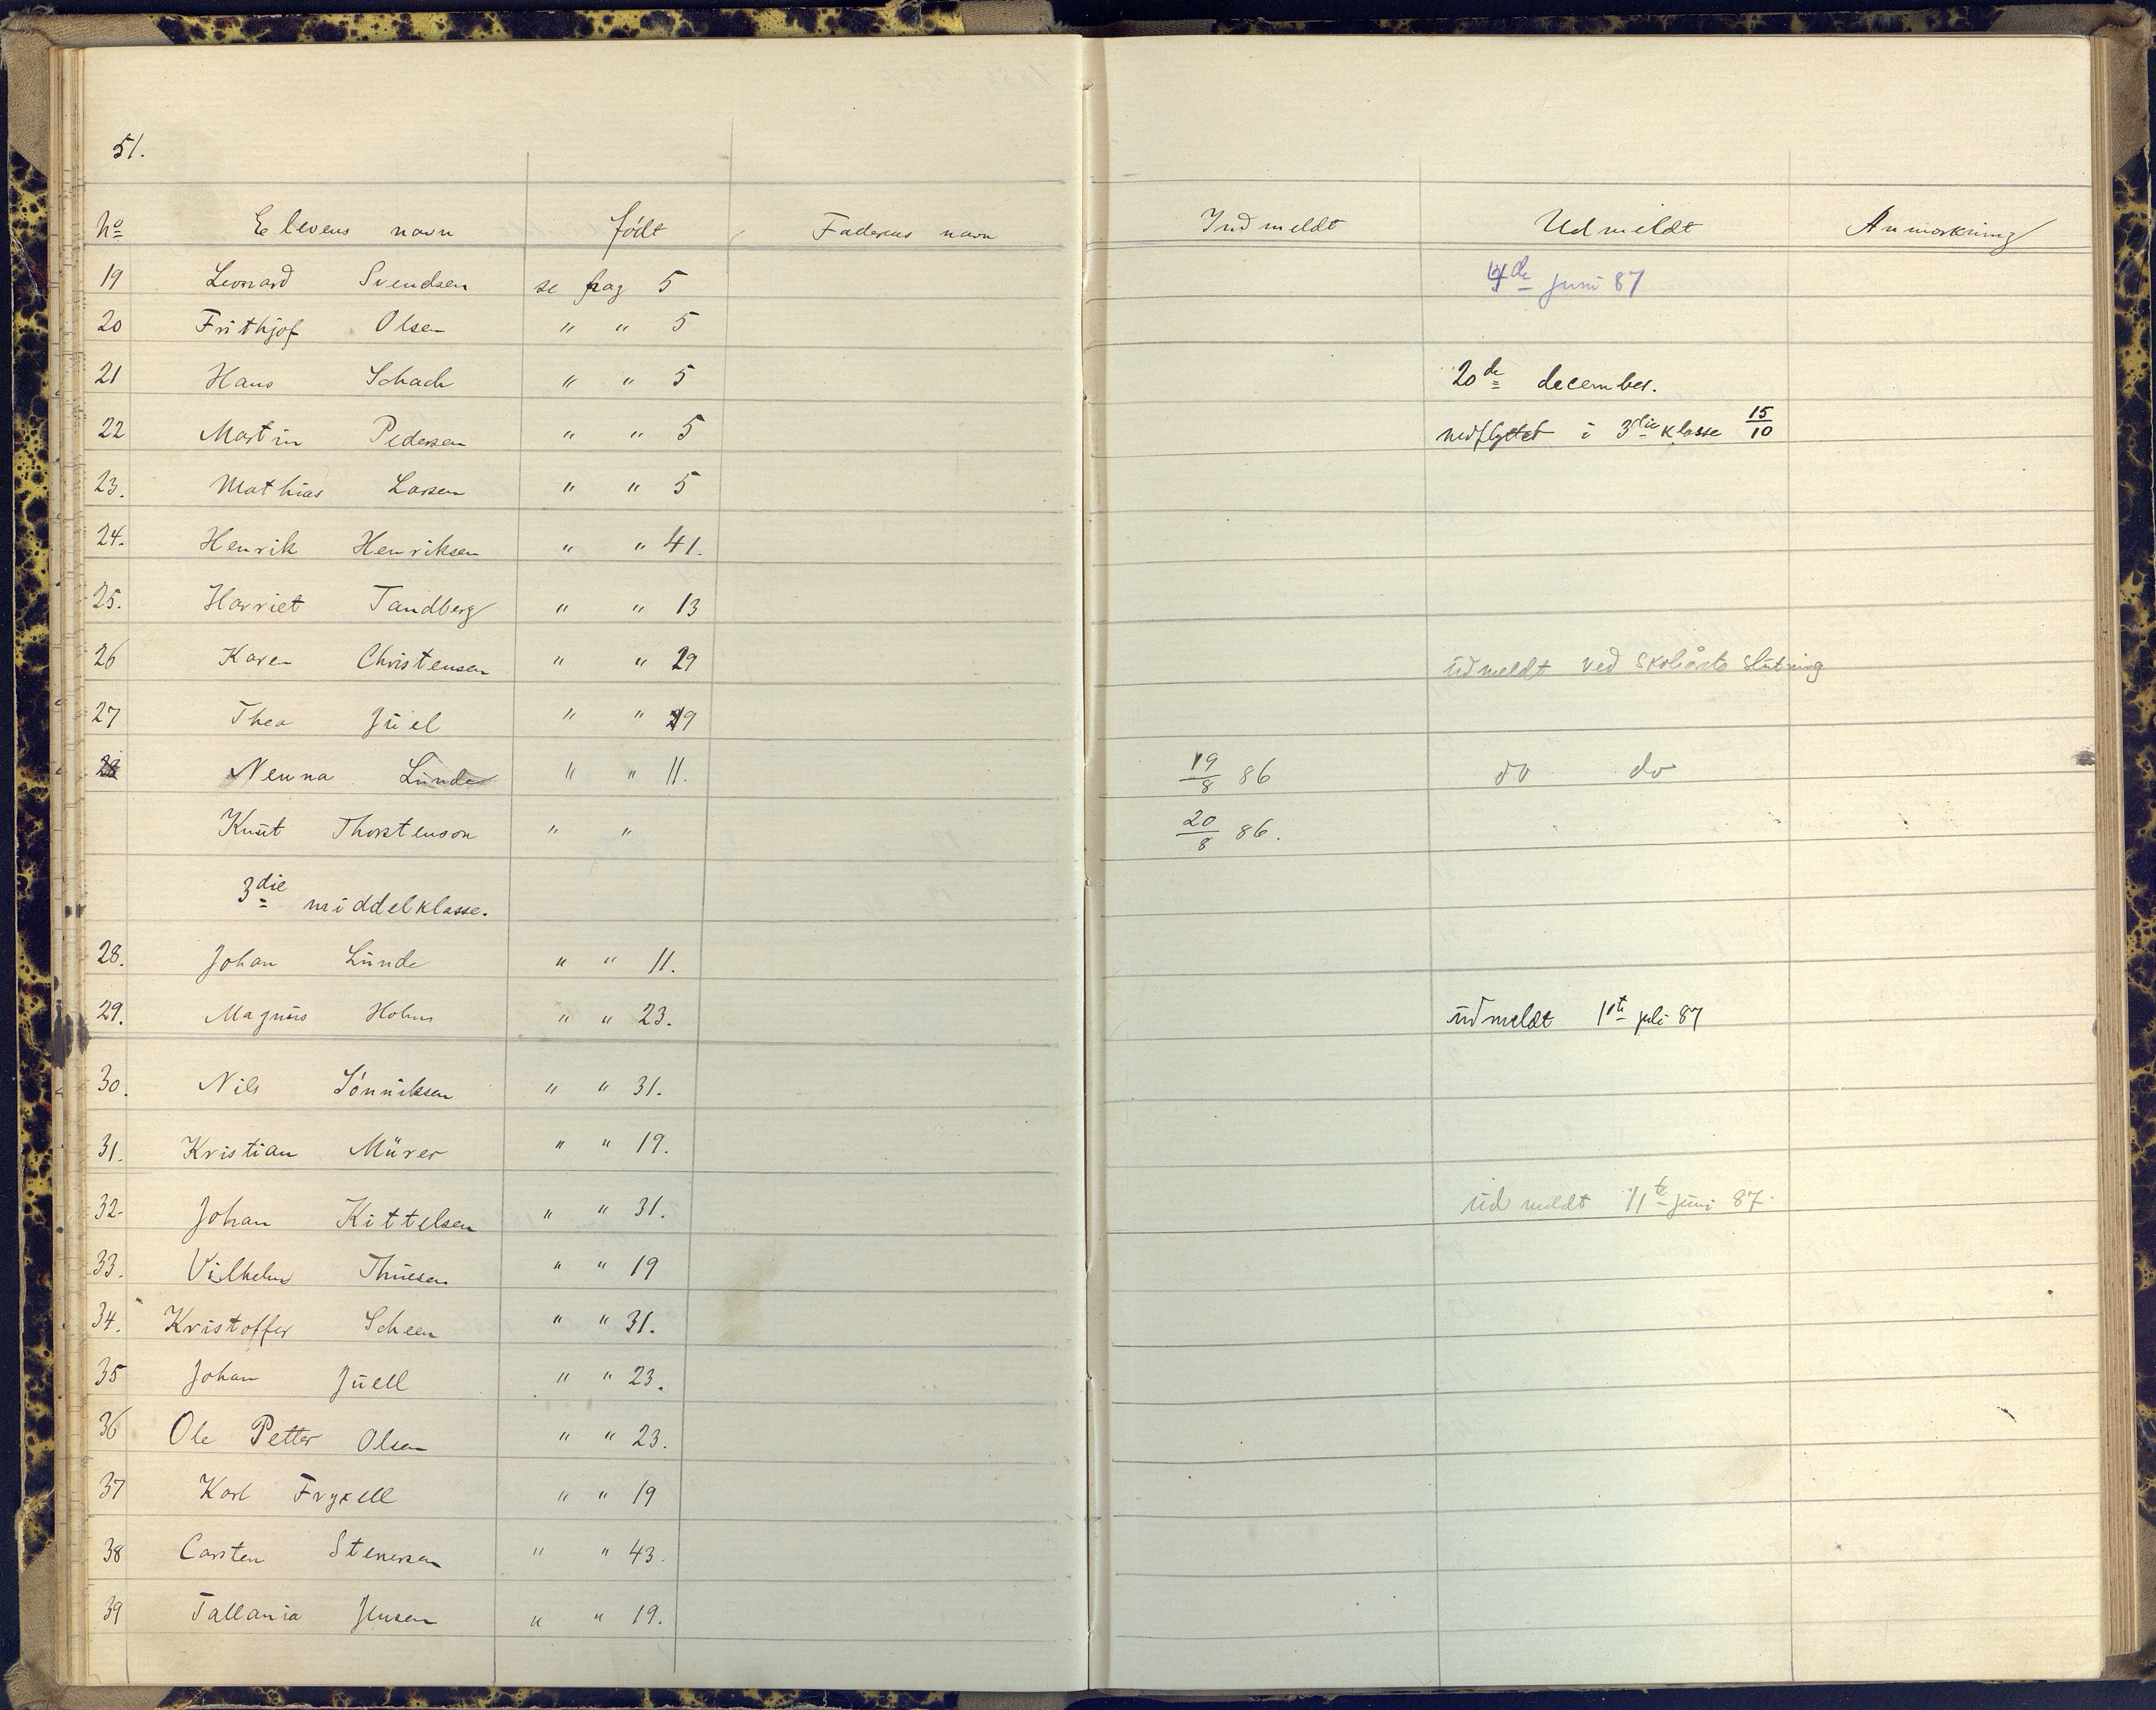 51.
No Elevens navn født Faderens navn Indmeldt Udmeldt Anmærkning
19 Leonard Svendsen se pag 5 4de juni 87
20 Frithjof Olsen " " 5
21 Hans Schach " " 5 20de december.
22 Martin Pedersen " " 5 nedflyttet i 3die klasse 15/10
23. Mathias Larsen " " 5
24. Henrik Henriksen " " 41.
25. Harriet Tandberg " " 13
26 Karen Christensen " " 29 udmeldt ved Skoleårets Slutning
27 Thea Juel " " 29
28 Nenna Lunde " " 11. 19/8 86 do do
Knut Thorstenson " " 20/8 86.
3die middelklasse.
28. Johan Lunde " " 11.
29. Magnus Holm " " 23. udmeldt 1st juli 87
30. Nils Sønniksen " " 31.
31. Kristian Mürer " " 19.
32. Johan Kittelsen " " 31. udmeldt 11te juni 87.
33. Vilhelm Thuesen " " 19
34. Kristoffer Scheen " " 31.
35 Johan Juell " " 23.
36 Ole Petter Olsen " " 23.
37 Karl Fryxell " " 19
38 Carsten Stenersen " " 43.
39 Tallania Jensen " " 19.